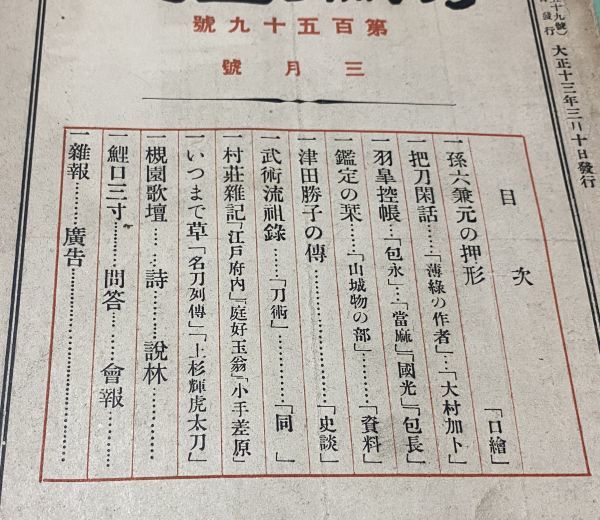 第百五十九號
三月號
大正十三年三月十日發行
目次
一孫六兼元の押形「口繪」
一把刀閑話……「薄綠の作者」…「大村加卜」
一羽皐控帳…「包永」…「當麻」「國光」「包長」
一鑑定の栞……「山城物の部」……「資料」
一津田勝子の傳…………「史談」
一武術流祖錄……「刀術」…………「同」
一村莊雜記「江戸府内」「庭好玉翁」「小手差原」
一いつまて草「名刀列傳」「上杉輝虎太刀」
一槻園歌壇……詩……說林…………
一鯉口三寸………問答………會報………
一雜報………廣告…………………